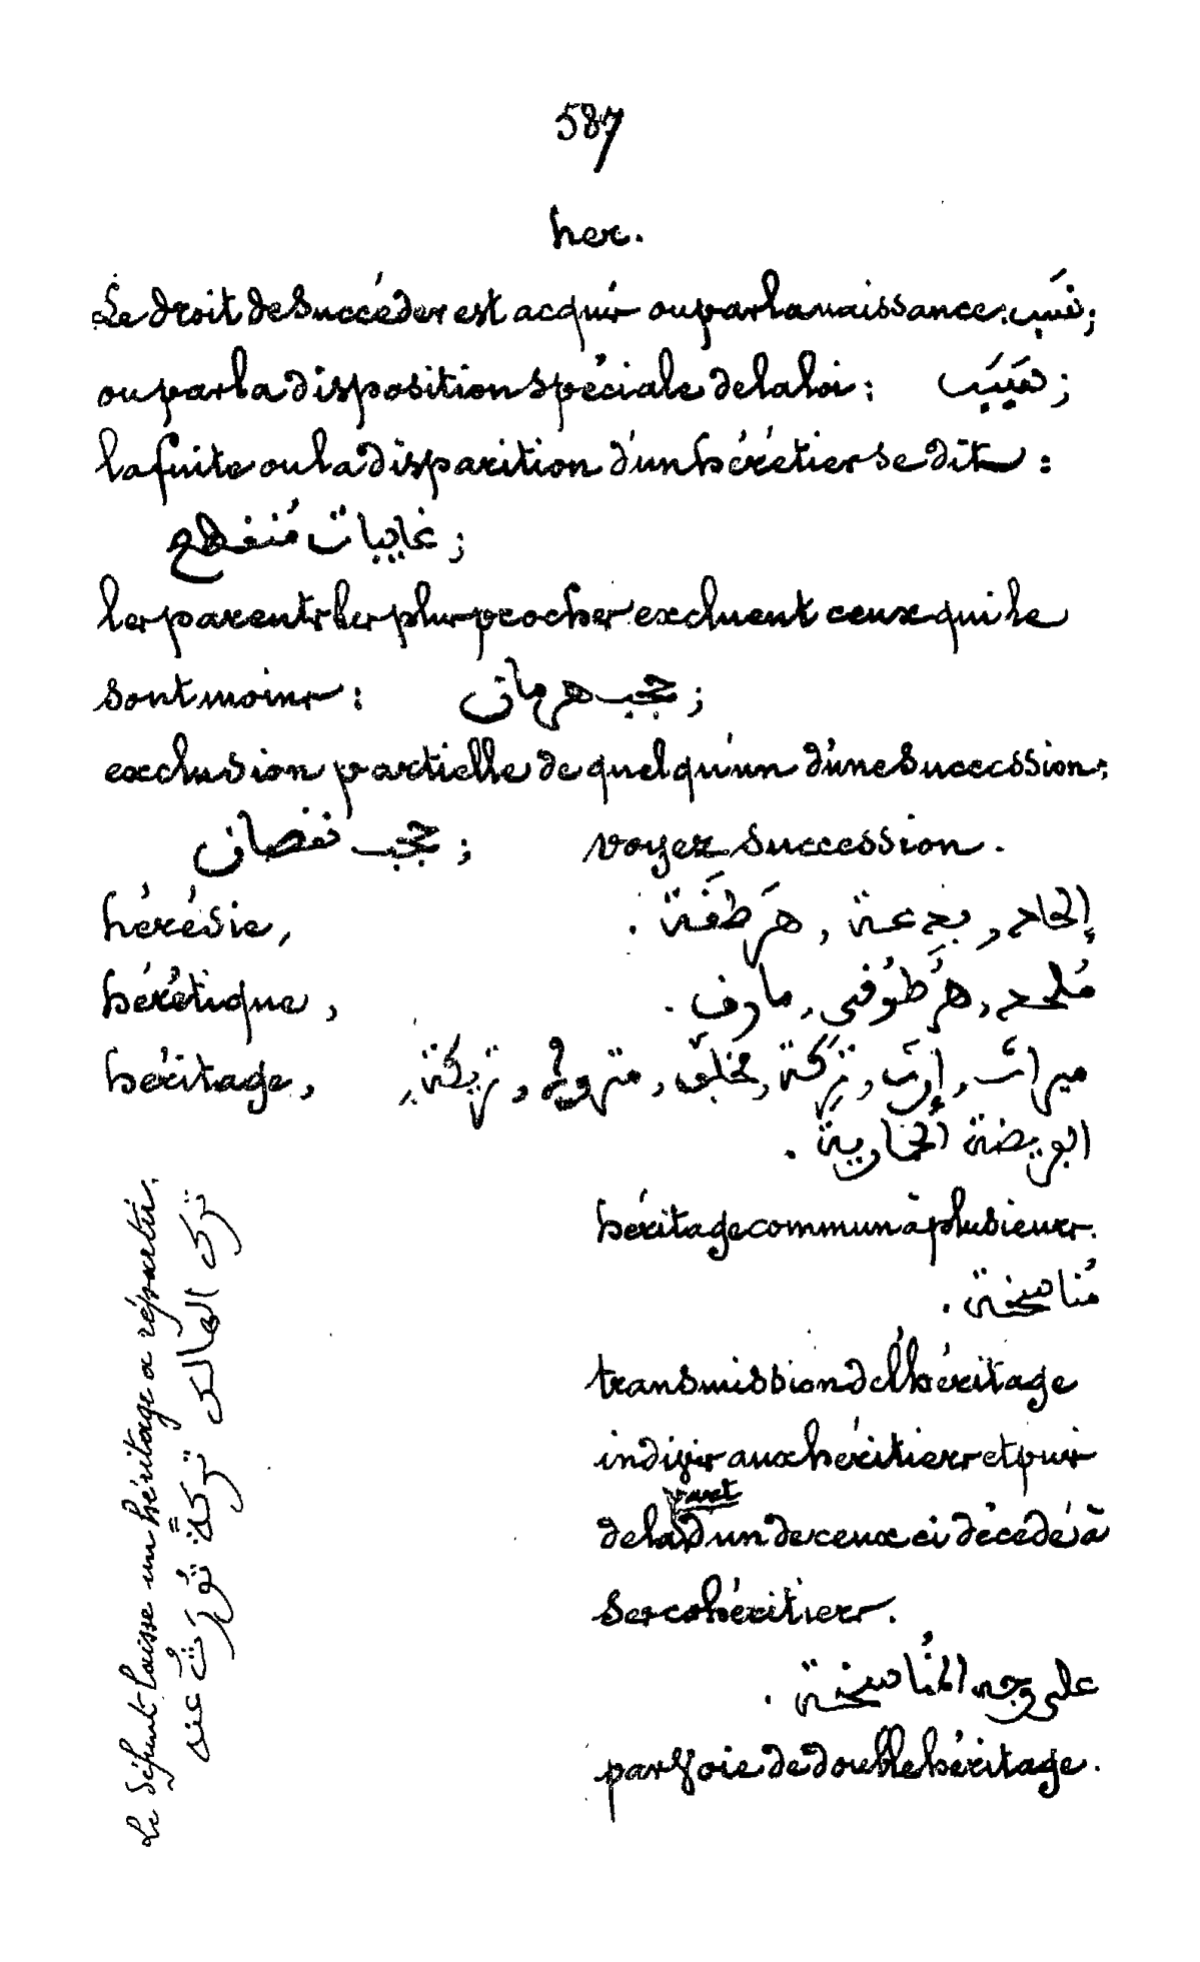 587
her.
Le droit de succéder est acquis ou par la naissance: نسَب;
ou par la disposition spéciale de la loi: سَبَب;
la fuite ou la disparition d'un héritier se dit:
غايبات مُنفطع;
les parents les plus proches excluent ceux qui le
sont moins: حجب هرمان;
exclusion partielle de quelqu'un d'une succession:
حجب نفصان; voyez succession.
hérésie, إلحاد, بدعة, هَرطَفَة.
hérétique, مُلحد, هرَطُوفي, مارف.
héritage, ميراث, إرث, تركة, مخلّف, متروك, تريكة,
البريضة الجارية.
héritage commun à plusieurs.
مُناسخة.
transmission de l'héritage
indivis aux héritiers et puis
de la part d'un de ceux ci décédé à
ses cohéritiers.
على وجه المُناسخة.
par voie de double héritage.
Le défunt laisse un héritage a répartir.
ترك الهالك تركةً تُورَثُ عنه